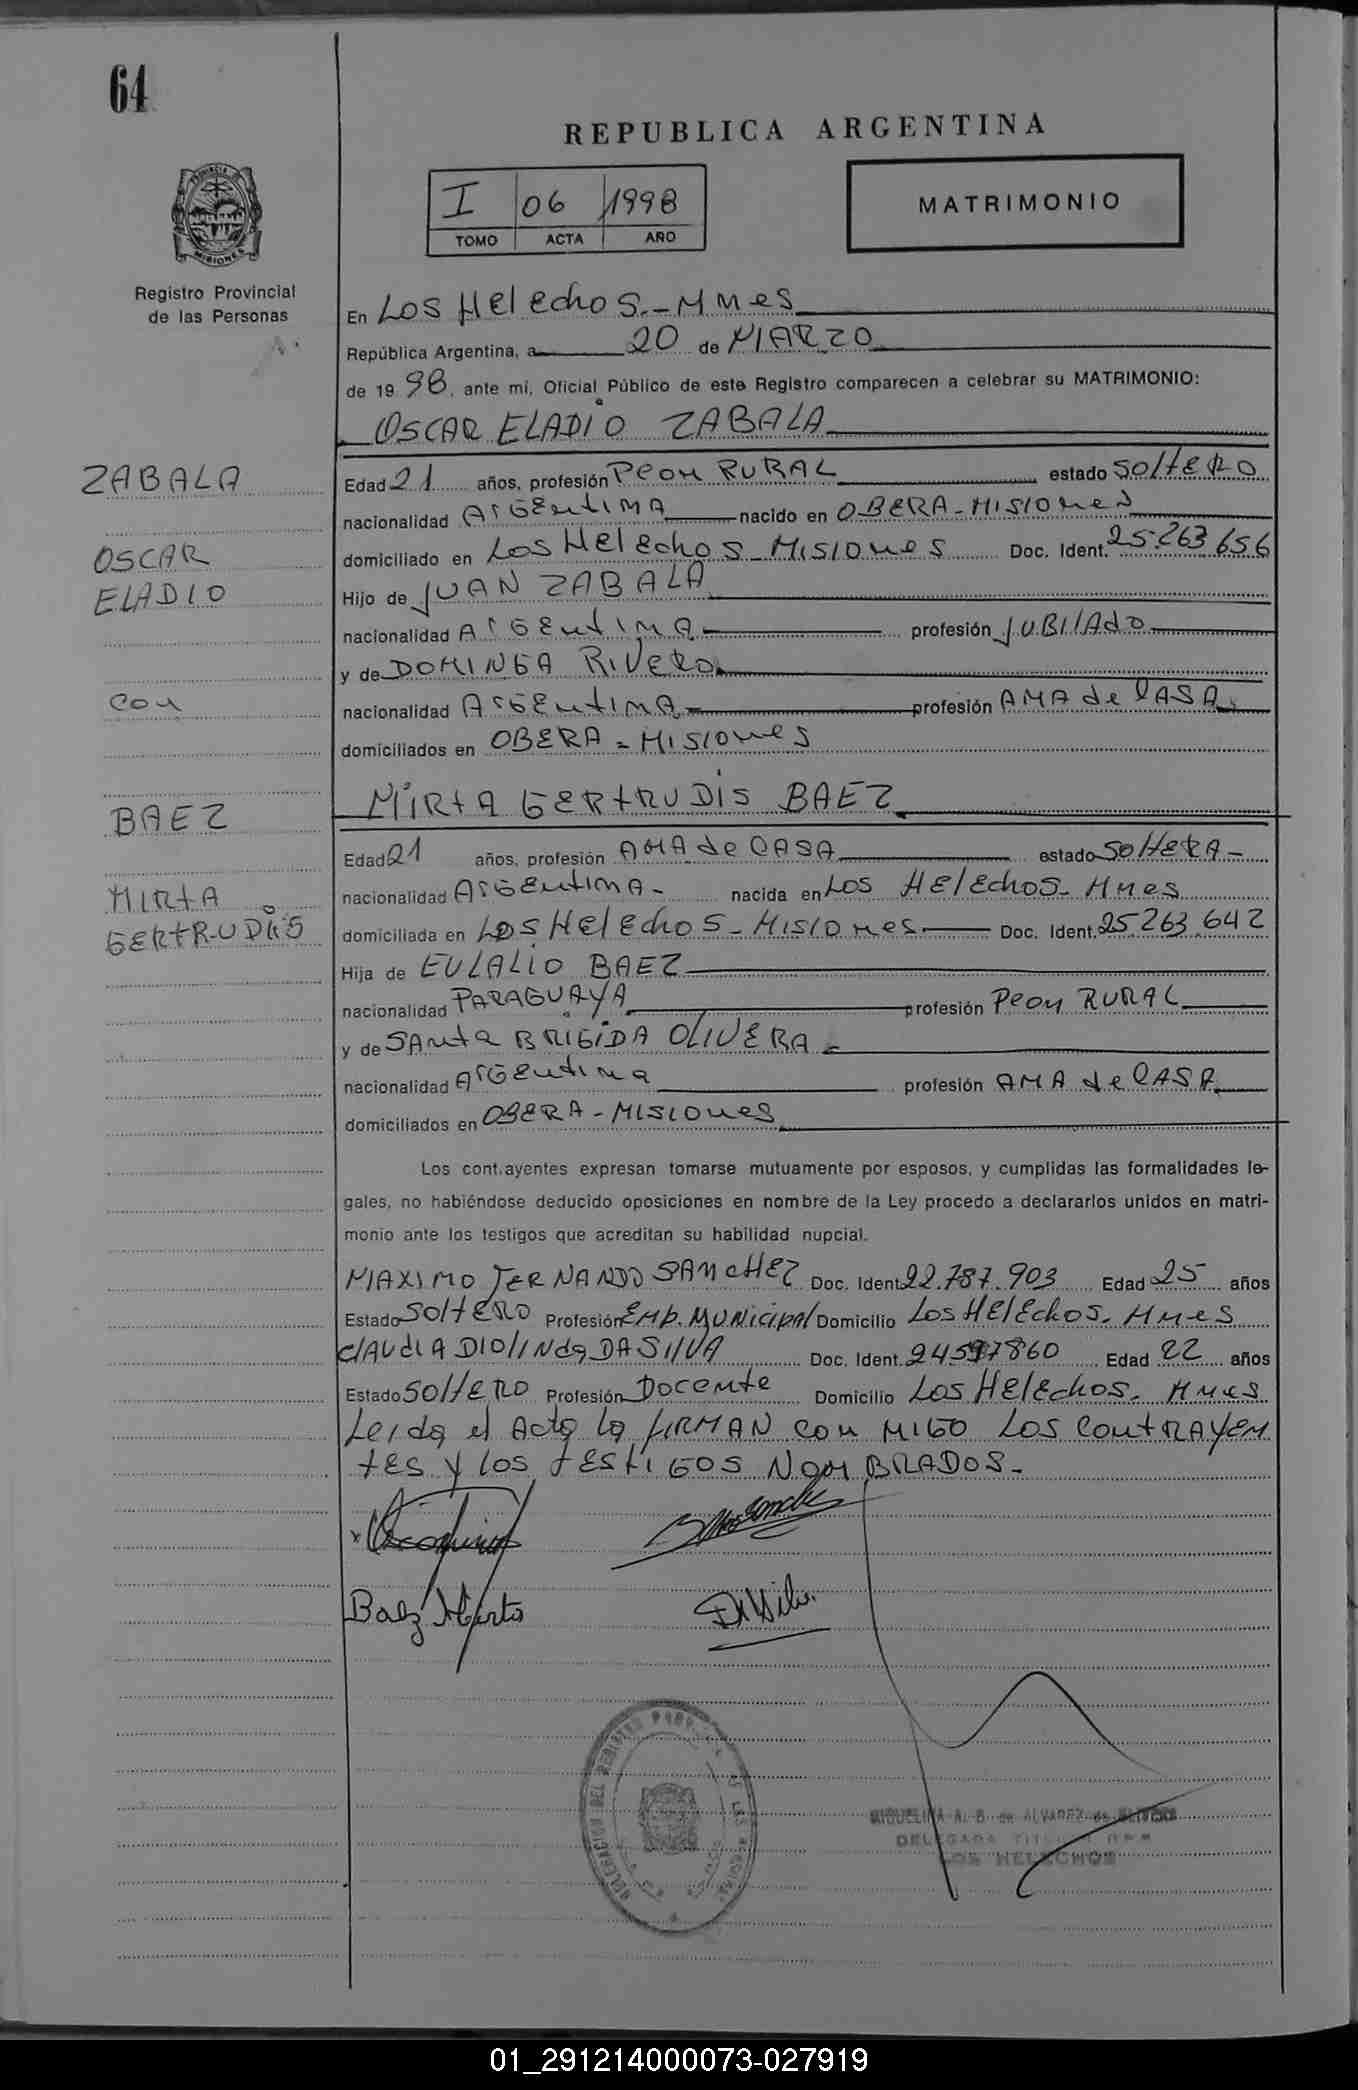 64
REPUBLICA ARGENTINA
I 06 1998
TOMO ACTA AÑO
MATRIMONIO
PROVINCIA DE
MISIONES
Registro Provincial
de las Personas
En Los Helechos.-Mnes
República Argentina, a 20 de MARZO
de 1998, ante mi, Oficial Público de este Registro comparecen a celebrar su MATRIMONIO:
OSCAR ELADIO ZABALA
ZABALA
OSCAR
ELADIO
con
BAEZ
MIRTA
GERTRUDIS
Edad 21 años, profesión Peon RURAL estado Soltero
nacionalidad Argentina nacido en OBERA-MISIONES
domiciliado en Los Helechos-Misiones Doc. Ident. 25.263.656
Hijo de JUAN ZABALA
nacionalidad Argentina profesión JUBILADO
y de DOMINGA RIVERO
nacionalidad Argentina profesión AMA de CASA
domiciliados en OBERA-MISIONES
MIRTA GERTRUDIS BAEZ
Edad 21 años, profesión AMA de CASA estado Soltera-
nacionalidad Argentina- nacida en Los Helechos-Mnes
domiciliada en Los Helechos-Misiones Doc. Ident. 25.263.642
Hija de EULALIO BAEZ
nacionalidad PARAGUAYA profesión Peon RURAL
y de Santa BRIGIDA OLIVERA
nacionalidad Argentina profesión AMA de CASA
domiciliados en OBERA-MISIONES
Los contrayentes expresan tomarse mutuamente por esposos, y cumplidas las formalidades le-
gales, no habiéndose deducido oposiciones en nombre de la Ley procedo a declararlos unidos en matri-
monio ante los testigos que acreditan su habilidad nupcial.
MAXIMO FERNANDO SANCHEZ Doc. Ident. 22.787.903 Edad 25 años
Estado Soltero Profesión Emp. Municipal Domicilio Los Helechos. Mnes
Claudia Diolinda DA SILVA Doc. Ident. 24597860 Edad 22 años
Estado Soltero Profesión Docente Domicilio Los Helechos. Mnes
Leida el Acta la firman con migo los contrayen
tes y los testigos nombrados.-
Baez Mirta
MIGUELINA A. B. de ALVAREZ de
DELEGADA TITULAR
LOS HELECHOS
01_291214000073-027919